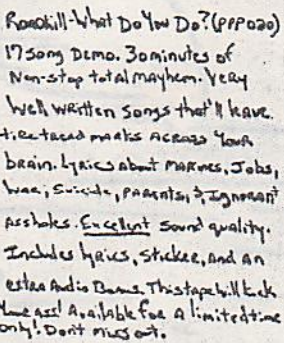 Roadkill-What Do You Do? (PPP020)
17 song Demo. 30 minutes of
Non-stop total mayhem. Very
well written songs that'll leave
tiretread marks across your
brain. Lyrics about Marines, Jobs,
war, Suicide, parents, & Ignorant
assholes. Excellent sound quality.
Includes lyrics, sticker, and an
extra Audio Bonus. This tape'll kick
your ass! Available for a limited time
only! Don't miss out.